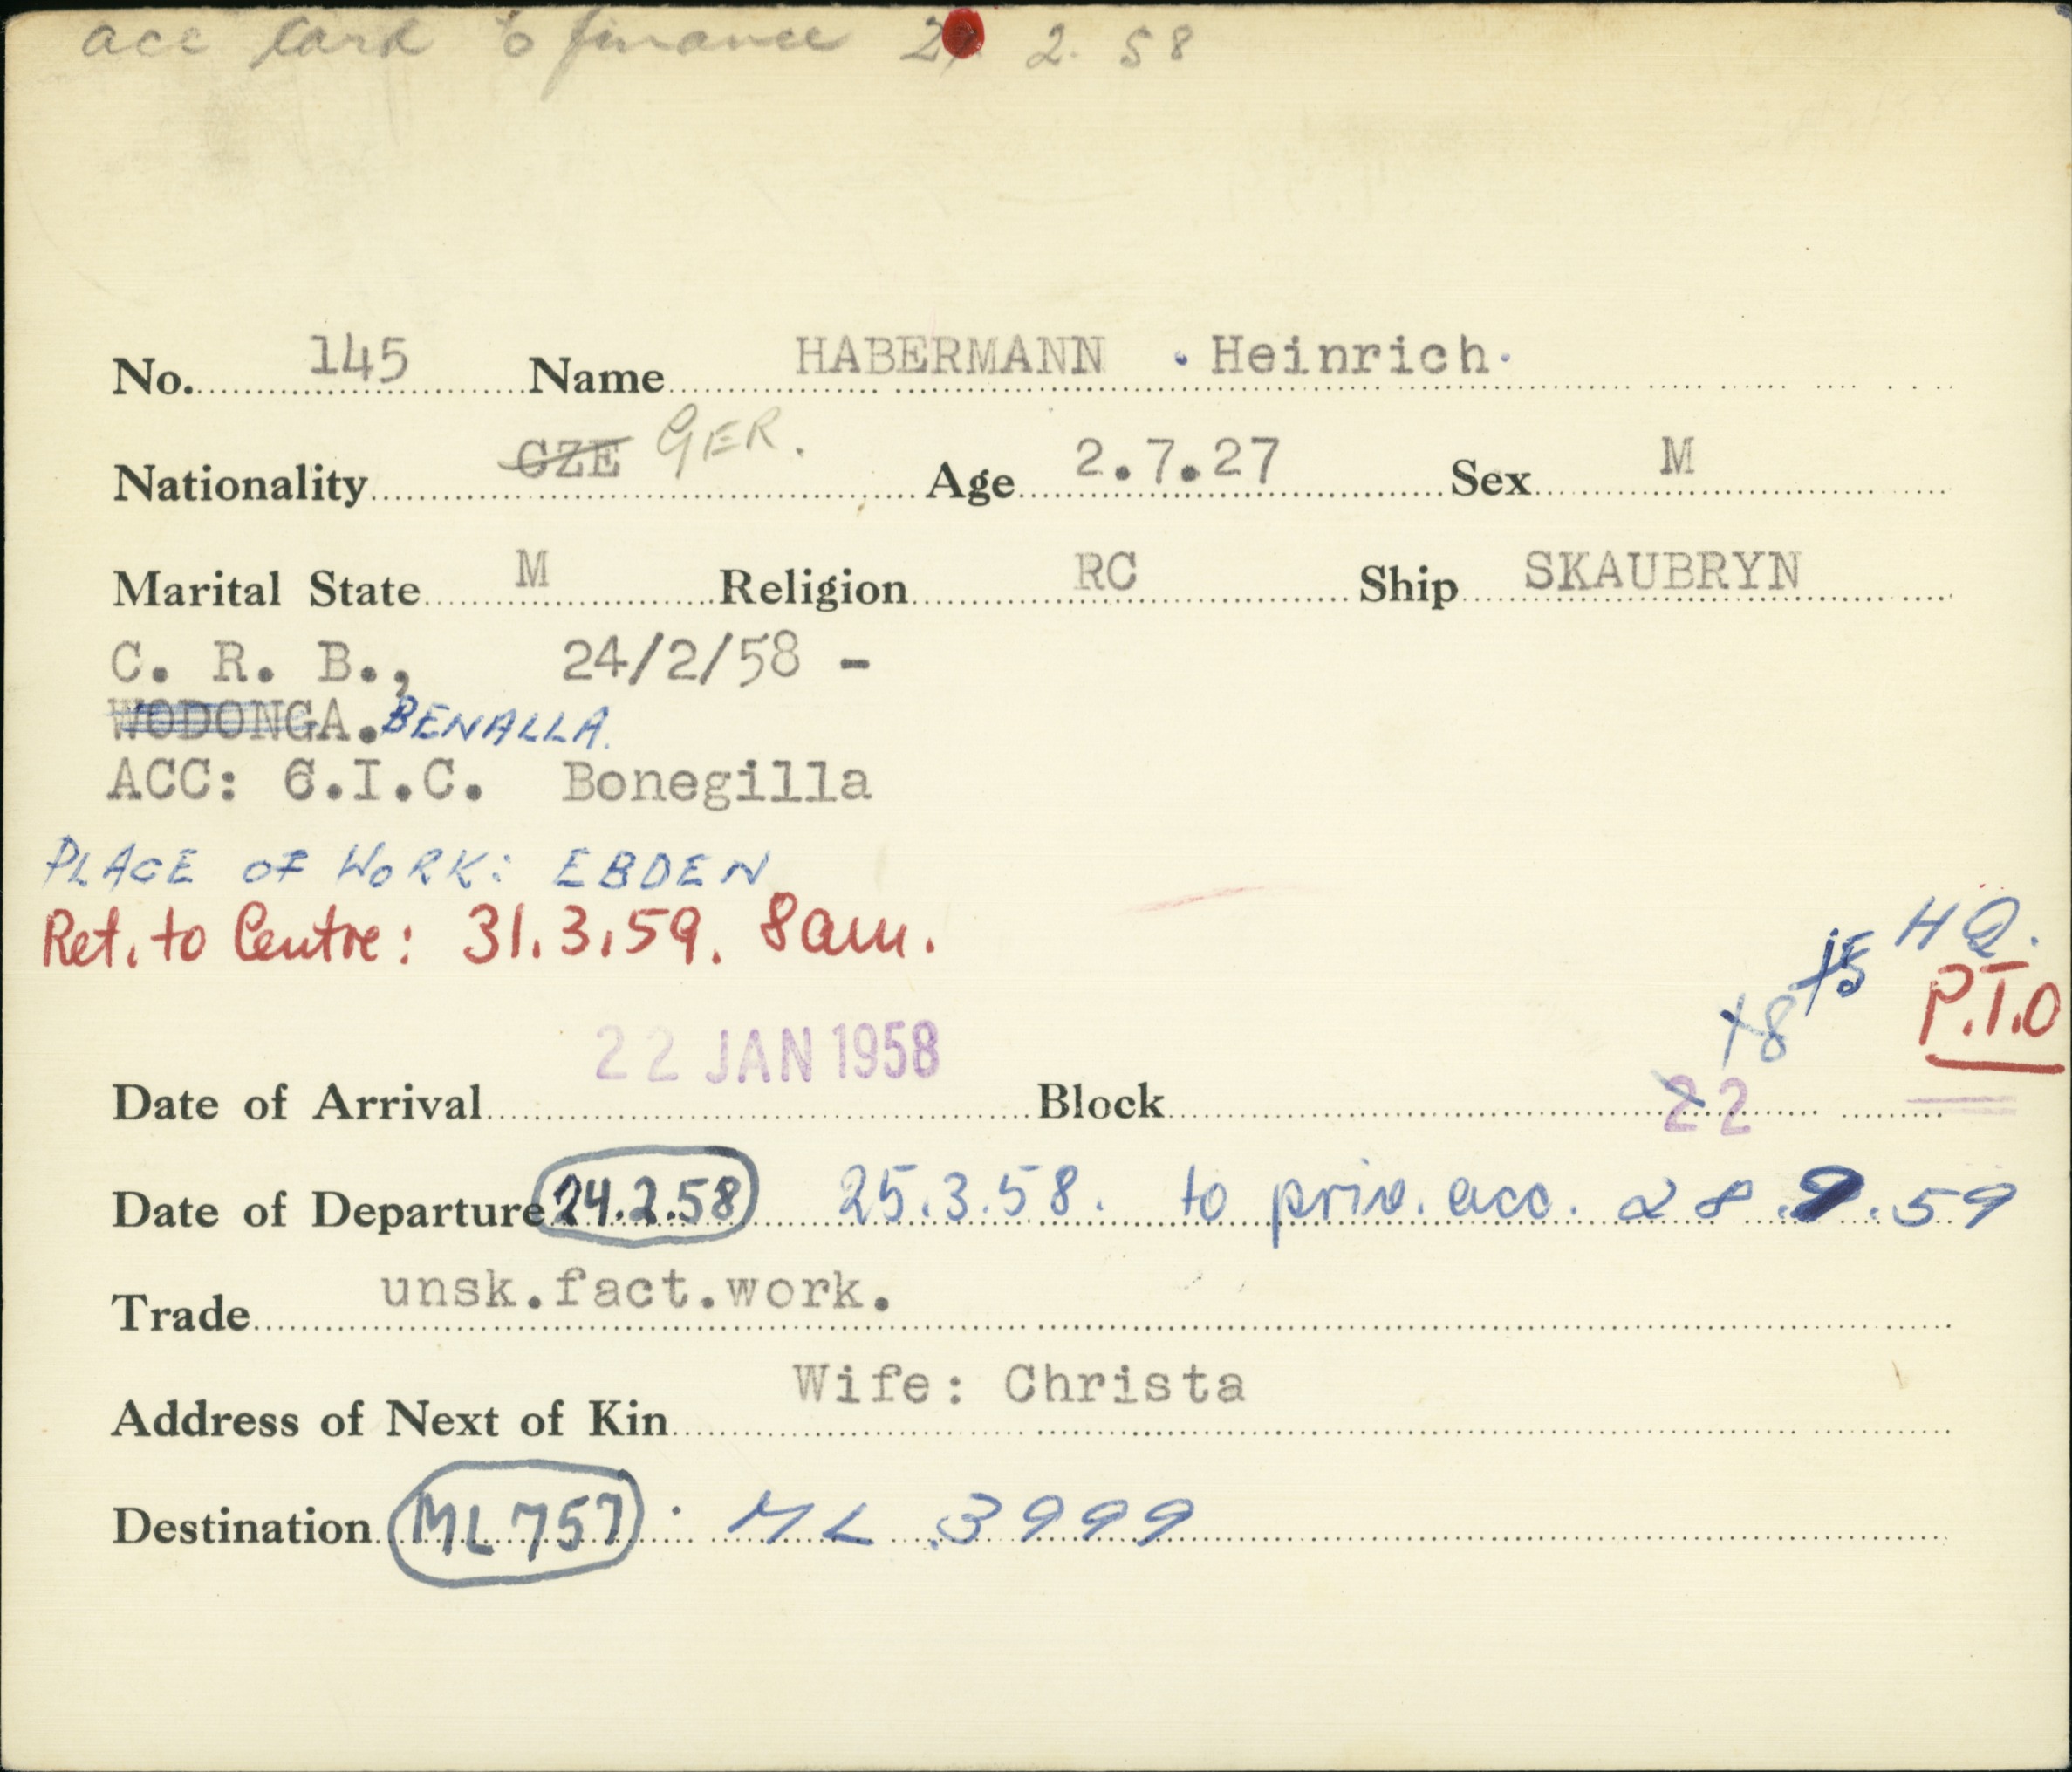 acc card to finance 2 2. 58
No. 145 Name HABERMANN . Heinrich.
Nationality CZE GER. Age 2.7.27 Sex M
Marital State M Religion RC Ship SKAUBRYN
C. R. B., 24/2/58 -
WODONGA. BENALLA.
ACC: C.I.C. Bonegilla
PLACE OF WORK: EBDEN
Ret. to Centre: 31.3.59. 8am.
15 HQ.
18 P.T.O
Date of Arrival 22 JAN 1958 Block 22
Date of Departure 24.2.58 25.3.58. to priv. acc. 28.9.59
Trade unsk.fact.work.
Address of Next of Kin Wife: Christa
Destination ML 757 . ML 3999